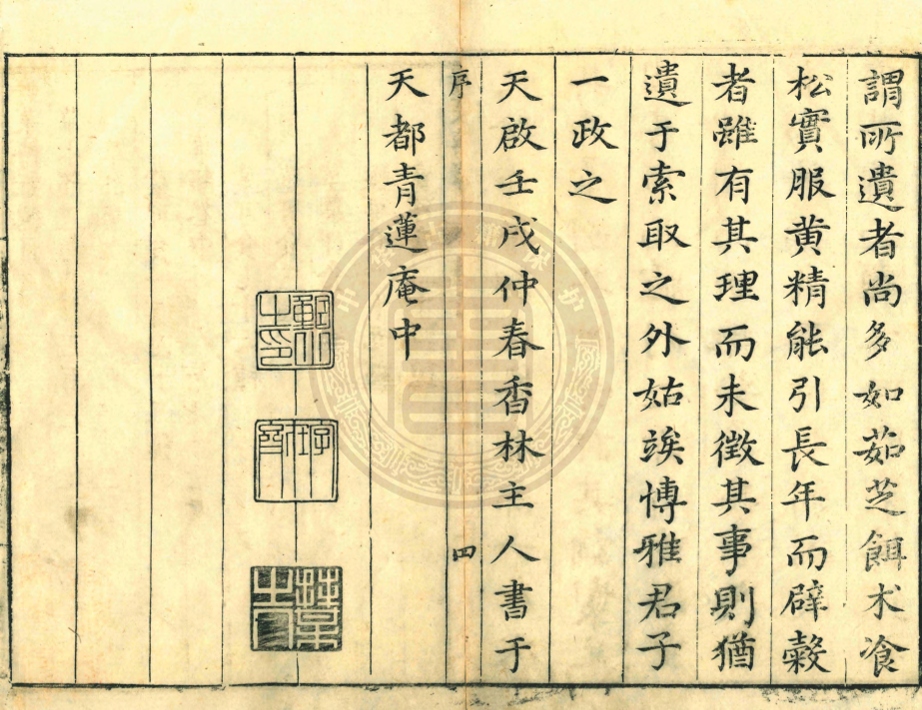 謂所遺者尚多如茹芝餌术飡
松實服黄精能引長年而辟糓
者雖有其理而未徵其事則猶
遺于索取之外姑竢博雅君子
一政之
天啟壬戌仲春香林主人書于
序 四
天都青蓮庵中